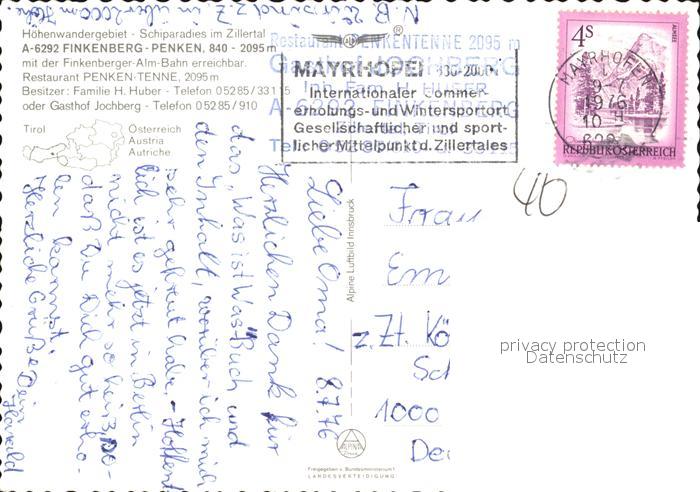 N.B. Zur Zeit in über 2000 m Höhe
Höhenwandergebiet - Schiparadies im Zillertal
A-6292 FINKENBERG-PENKEN, 840 - 2095 m
mit der Finkenberger-Alm-Bahn erreichbar.
Restaurant PENKEN-TENNE, 2095 m
Besitzer: Familie H. Huber - Telefon 05285/33115
oder Gasthof Jochberg - Telefon 05285/910
Tirol
Österreich
Austria
Autriche
Restaurant PENKENTENNE 2095 m
MAYRHOFEN 630-2000m
Internationaler Sommer-
erholungs- und Wintersportort
Gesellschaftlicher und sport-
licher Mittelpunkt d. Zillertales
4S
ALMSEE
REPUBLIK ÖSTERREICH
MAYRHOFEN
1976
10
40
8.7.76
Liebe Oma!
Herzlichen Dank für
das, Was ist Was-Buch und
den Inhalt, worüber ich mich
sehr gefreut habe. - Hoffent
lich ist es jetzt in Berlin
nicht mehr so heiß, so-
daß Du Dich gut erho-
len kannst.
Herzliche Grüße Dein
Harald
Alpine Luftbild Innsbruck
Frau
Em
z.Zt. Kö
Sch
1000
De
ALPINE
Freigegeben v. Bundesministerium f.
LANDESVERTEIDIGUNG
privacy protection
Datenschutz